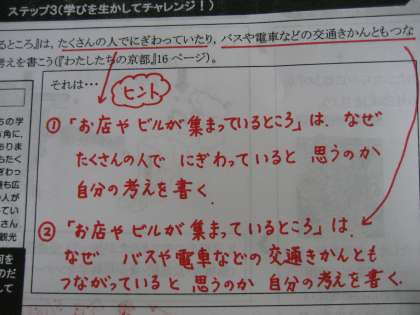 ステップ3(学びを生かしてチャレンジ！)
るところ』は，たくさんの人でにぎわっていたり，バスや電車などの交通きかんともつな
考えを書こう(『わたしたちの京都』16ページ)。
それは…
ヒント
① 「お店や ビルが 集まっているところ」は、なぜ
たくさんの人で にぎわっていると 思うのか
自分の考えを 書く.
② 「お店や ビルが 集まっているところ」は、
なぜ バスや電車などの 交通きかんとも
つながっていると 思うのか 自分の考えを 書く.
ちの学
方角に,
ありま
もたく
ぎわっ
持ち広
の人が
てい
さん
観光
何を
のだ
して